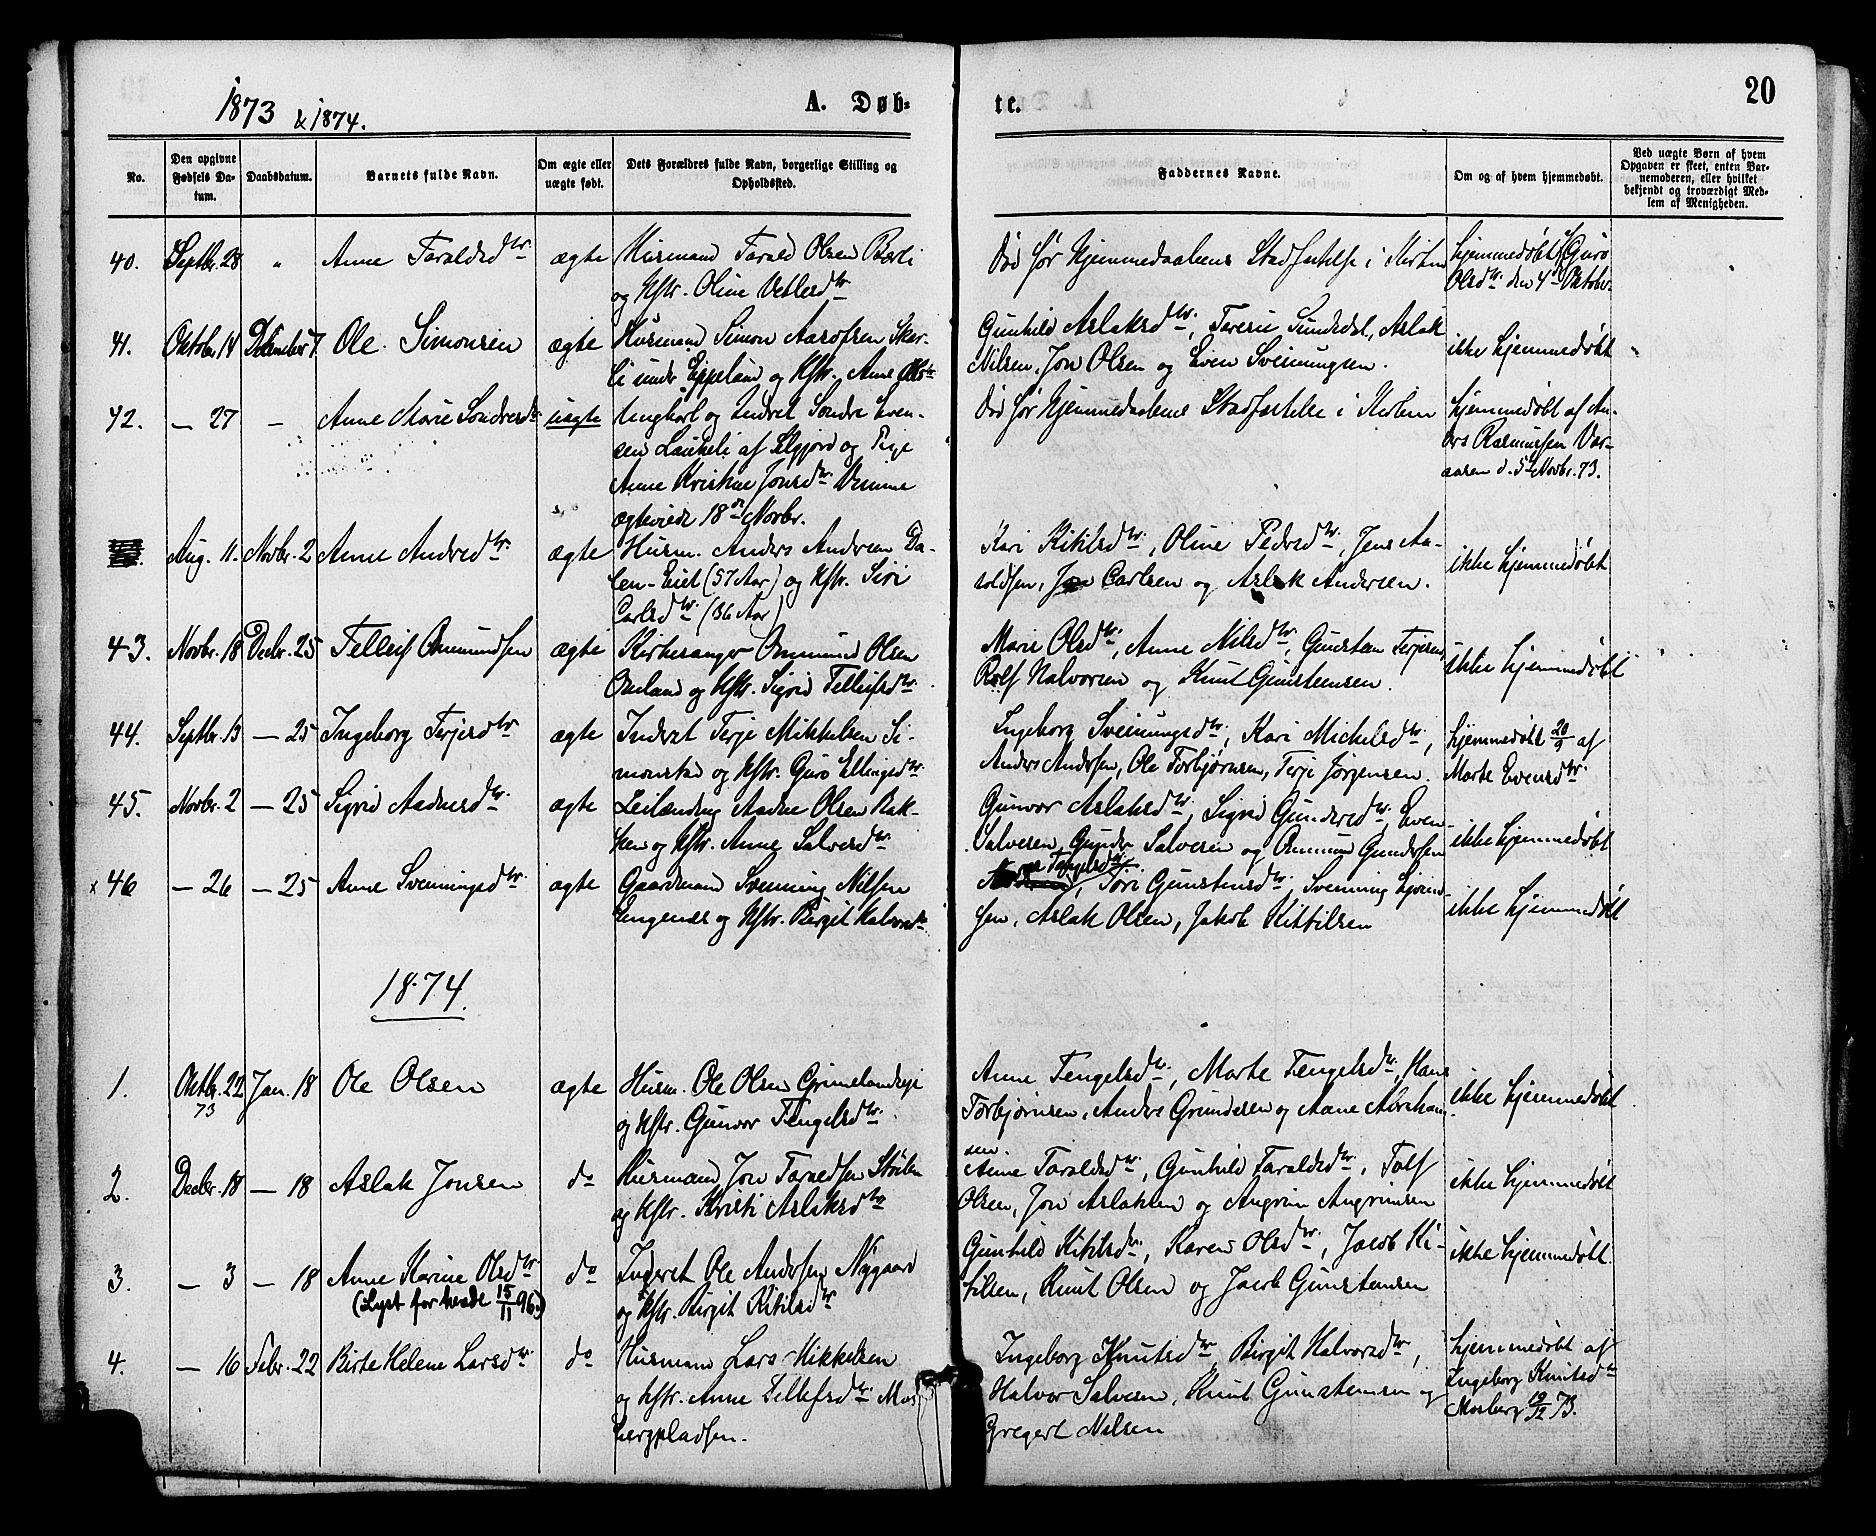 1873 & 1874.
A. Døb-
te.
20
No.
Den opgivne Fødsels Datum.
Daabsdatum.
Barnets fulde Navn.
Om ægte eller uægte født.
Dets Forældres fulde Navn, borgerlige Stilling og Opholdssted.
Faddernes Navne.
Om og af hvem hjemmedøbt.
Ved uægte Børn af hvem Opgaven er skeet, enten Barnemoderen, eller hvilket bekjendt og troværdigt Medlem af Menigheden.
40. Septbr. 28 " Anne Taraldsdtr. ægte Husmand Tarald Olsen Berli
og Kstr. Oline Vetlesdtr
Død før Hjemmedaabens Stadfæstelse i Kirken
hjemmedøbt af Guro
Olsdtr. den 4de Oktober
41. Oktobr. 14 December 7 Ole Simonsen ægte Husmand Simon Aasofsen Sker-
li under Eppeland og Kstr. Anne Olsdtr
Gunhild Aslaksdtr., Torern Sundsdal, Aslak
Nilsen, Jon Olsen og Even Sveinungsen.
ikke hjemmedøbt
42. — 27 — Anne Marie Sondresdtr uægte Ungkarl og Inderst Sondre Even-
sen Laukeli af Elgjord og Pige
Anne Kristine Jonsdtr Vimme
ægteviede 18de Novbr.
Død før Hjemmedaabens Stadfæstelse i Kirken
hjemmedøbt af An-
ders Rasmussen Var-
aasen d. 5te Novbr. 73.
Aug. 11. Novbr. 2 Anne Andredtr. ægte Husm. Anders Andersen Da-
len-Eiet (57 Aar) og Kstr. Siri
Carlsdtr. (36 Aar)
Kari Kitilsdtr., Oline Pedersdtr., Jens Aa-
soldsen, Jon Carlsen og Aslak Andersen.
ikke hjemmedøbt
43. Novbr. 18 Decbr. 25 Tellef Ommundsen ægte Kirkesanger Ommund Olsen
Omland og Kstr. Sigrid Tellefsdtr.
Marie Olsdtr., Anne Nilsdtr., Gunsten Terjesen,
Rolf Halvorsen og Knut Gunsteensen.
ikke hjemmedøbt
44. Septbr. 13 — 25 Ingeborg Terjesdtr ægte Inderst Terje Mikkelsen Si-
monstad og Kstr. Guro Ellingsdtr.
Ingeborg Sveinungsdtr., Kari Michelsdtr.,
Anders Andersen, Ole Torbjørnsen, Terje Jørgensen.
hjemmedøbt 20/9 af
Marte Evensdtr.
45. Novbr. 2 — 25 Sigrid Aadnesdtr. ægte Leilænding Aadne Olsen Bak-
ken og Kstr. Anne Salvesdtr.
Gunvor Aslaksdtr., Sigrid Gundersdtr., Even
Salvesen, Gunder Salvesen og Ommund Gundersen
ikke hjemmedøbt
x 46 — 26 — 25 Anne Sveinungsdtr. ægte Gaardmand Svenning Nilsen
Engenes og Kstr. Birgit Halvorsdtr
Tengelsdtr., Tori Gunstensdtr., Svenning
sen, Aslak Olsen, Jakob Kittilsen
ikke hjemmedøbt
1874.
1. Oktbr. 22 73 Jan. 18 Ole Olsen ægte Husm. Ole Olsen Grimelandseje
og Kstr. Gunvor Tengelsdtr.
Anne Tengelsdtr., Marte Tengelsdtr., Hans
Torbjørnsen, Andre Grundesen og Aane Abraham-
sen.
ikke hjemmedøbt
2. Decbr. 18 — 18 Aslak Jonsen do Husmand Jon Taraldsen Støilen
og Kstr. Kristi Aslaksdtr
Anne Taraldsdtr., Gunhild Taraldsdtr., Tolf
Olsen, Jon Aslaksen og Angrim Angrimsen
ikke hjemmedøbt
3. — 3 — 18 Anne Karine Olsdtr. do Inderst Ole Andersen Nygaard
(Lyst for hende 15/11 96.)
og Kstr. Birgit Kitilsdtr
Gunhild Kitilsdtr., Karen Olsdtr., Jacob Ki-
tilsen, Knut Olsen og Jacob Gunstensen
ikke hjemmedøbt
4. — 16 Febr. 22 Birte Helene Larsdtr. do Husmand Lars Mikkelsen
og Kstr. Anne Tellefsdtr. Mos-
bergpladsen.
Ingeborg Knutsdtr., Birgit Halvorsdtr.,
Halvor Salvesen, Knut Gunstensen og
Gregert Nilsen
hjemmedøbt af
Ingeborg Knutsdtr
Mosberg 19/12 73.